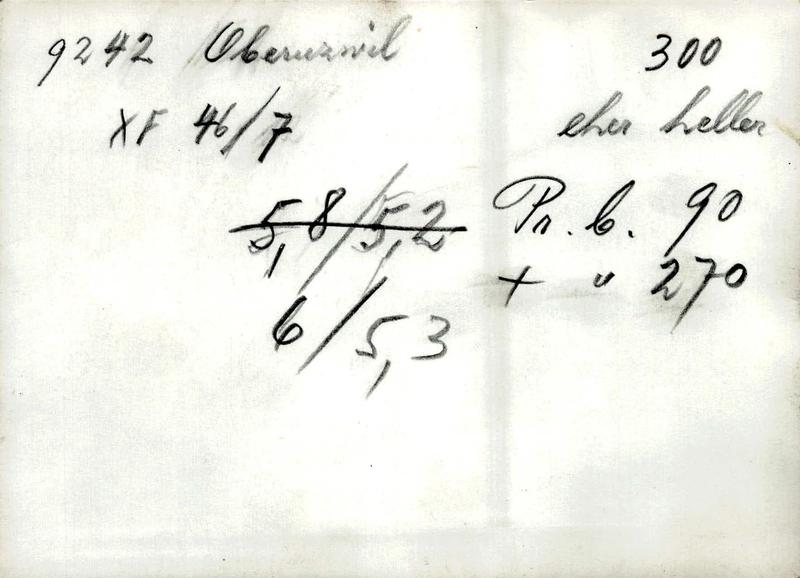 9242 Oberuzwil 300
XF 46/7 eher heller
5,8/5,2 Pr. b. 90
+ " 270
6/5,3